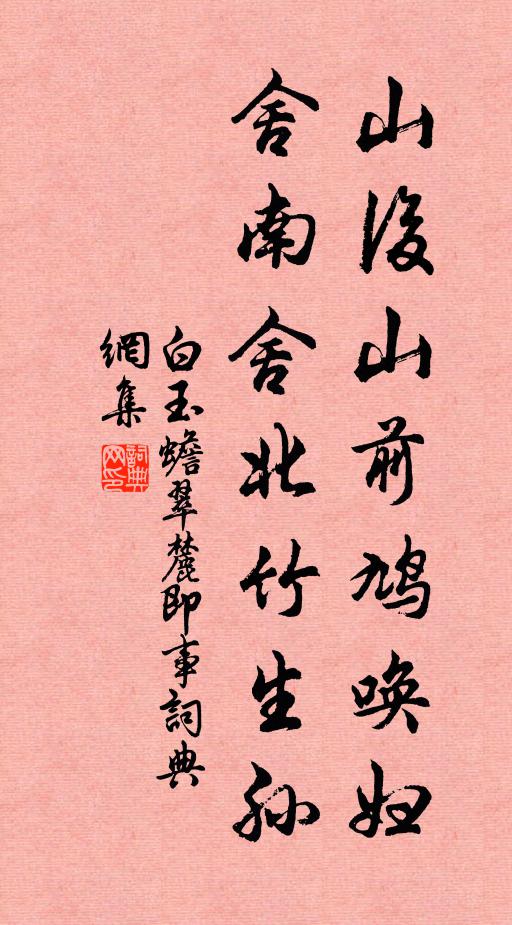 山後山前鳩喚婦
舍南舍北竹生孫
白玉蟾翠麓即事詞典
網集
詞典
网印